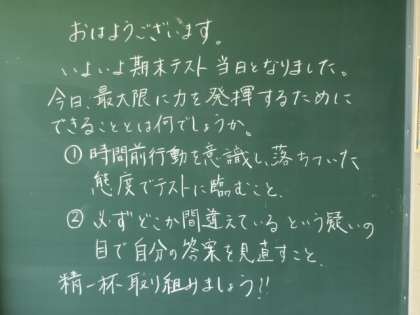 おはようございます。
いよいよ期末テスト当日となりました。
今日、最大限に力を発揮するために
できることとは何でしょうか。
① 時間前行動を意識し、落ちついた
態度でテストに臨むこと、
② 必ずどこか間違えているという疑いの
目で自分の答案を見直すこと、
精一杯取り組みましょう!!